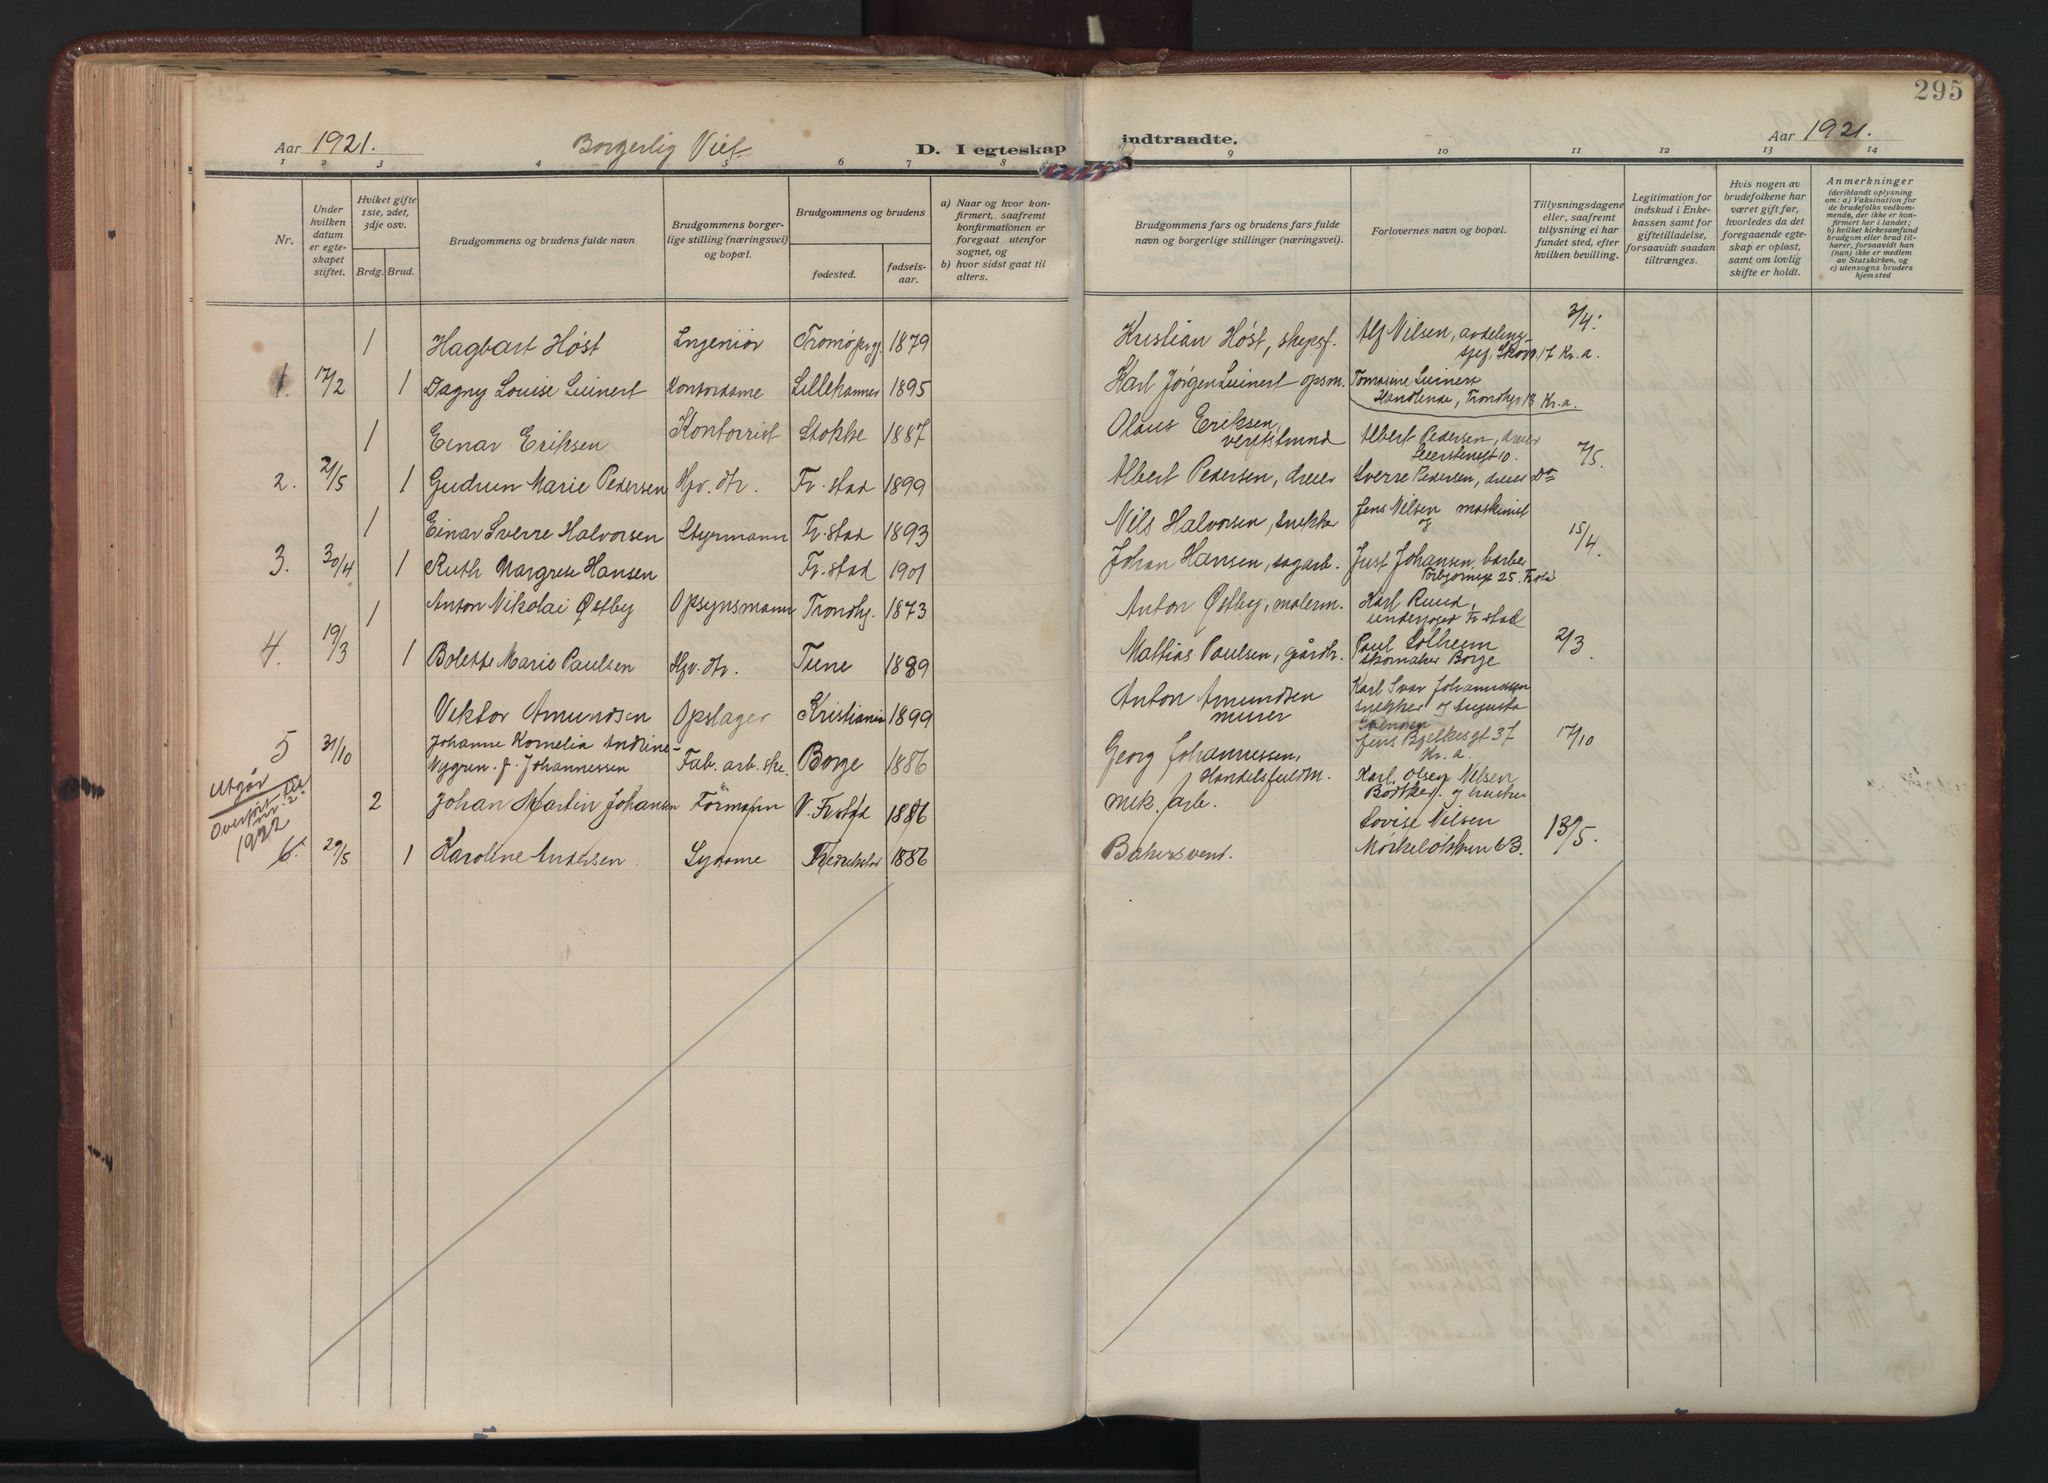 295
Aar 1921. Borgerlig Viet D. I egteskap indtraadte. Aar 1921.
1 2 3 4 5 6 7 8 9 10 11 12 13 14
Nr.
Under hvilken datum er egteskapet stiftet.
Hviket gifte 1ste, 2det, 3dje osv.
Brdg. Brud.
Brudgommens og brudens fulde navn
Brudgommens borgerlige stilling (næringsvei) og bopæl.
Brudgommens og brudens
fødested.
fødselsaar.
a) Naar og hvor konfirmert, saafremt konfirmationen er foregaat utenfor sognet, og
b) hvor sidst gaat til alters.
Brudgommens fars og brudens fars fulde navn og borgerlige stillinger (næringsvei).
Forlovernes navn og bopæl.
Tillysningsdagene eller, saafremt tillysning ei har fundet sted, efter hvilken bevilling.
Legitimation for indskud i Enkekassen samt for giftetilladelse, forsaavidt saadan tiltrænges.
Hvis nogen av brudefolkene har været gift før, hvorledes da det foregaaende egteskap er opløst, samt om lovlig skifte er holdt.
Anmerkninger
(deriblandt oplysning om: a) Vaksination for de brudefolks vedkommende, der ikke er konfirmert her i landet; b) hvilket kirkesamfund brudgom eller brud tilhører, forsaavidt han (hun) ikke er medlem av Statskirken, og c) utensogns bruders hjemsted
1 Hagbart Høst Ingeniør Tromø prgj. 1879 Kristian Høst, skipsf. Alf Nilsen, avdelingssjef, 17 Kr.a. 3/4.
1. 17/2 1 Dagny Louise Leinert Kontordame Lillehammer 1895 Karl Jörgen Leinert opsm. Tomasine Leinert Handlende, Trondhj 13 Kr.a.
1 Einar Eriksen Kontorist Stokke 1887 Olaus Eriksen, Albert Pedersen, dreier 10. 7/5.
2. 21/5 1 Gudrun Marie Pedersen Hjv. dtr. Fr.stad 1899 Albert Pedersen, dreier Sverre Pedersen, dreier Do
1 Einar Sverre Halvorsen Styrmann Fr.stad 1893 Nils Halvorsen, snekker Jens Nilsen maskinist og 15/4.
3. 30/4 1 Ruth Margrete Hansen Fr.stad 1901 Johan Hansen, sagarb. Just Johansen, barber Torbjørnsgt 25. Fr.stad
1 Anton Nikolai Østby Opsynsmann Trondhj. 1873 Anton Østby, malerm. Karl Ruud, Fr.stad 2/3.
4. 19/3 1 Bolette Marie Paulsen Hjv. dtr. Tune 1889 Mattias Paulsen, gårdbr. Paul Solheim skomaker Borge
Viktor Amundsen Opslager Kristiania 1899 Anton Amundsen murer Karl Ivar Johannessen snekker og Augusta Svendsen
5 31/10 Johanne Kornelia Andrine Nygren f. Johannessen Fab. arb. ske. Borge 1886 Georg Johannessen, Handelsfuldm. Jens Bjelkesgt 37 Kr.a. 17/10
Utgår
Overført III nr. 2 1922
2 Johan Martin Johansen Formann V. Fr.stad 1886 mek. arb. Karl Olsen Nilsen Bødtker. og hustru
6. 29/5 1 Karoline Andersen Sydame Fredrikshald 1886 Bakersvend. Lovise Nilsen 6B. 13/5.